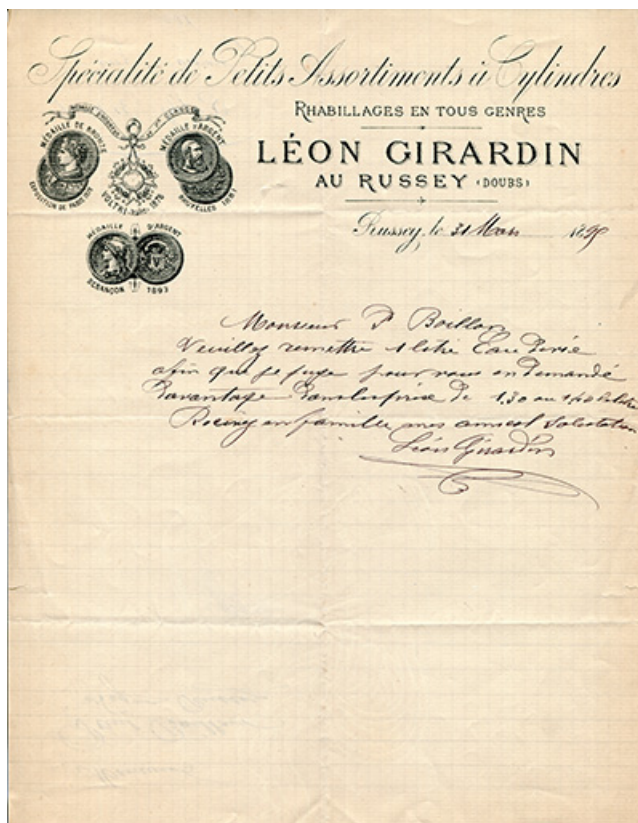 Spécialité de Petits Assortiments à Cylindres
RHABILLAGES EN TOUS GENRES
LÉON GIRARDIN
AU RUSSEY (DOUBS)
MÉDAILLE DE BRONZE
EXPOSITION DE PARIS
VOLTRI 1876
MÉDAILLE D'ARGENT
BRUXELLES
MÉDAILLE D'ARGENT
BESANÇON 1893
Russey, le 31 Mars 189
Monsieur P Boillon
Veuillez remettre 1 litre Eau de vie
afin que je puge pour vous en demandé
Davantage Dans les prix de 1.30 au 1.40 le litre
Recevez en famille mes amical Salutation
Léon Girardin